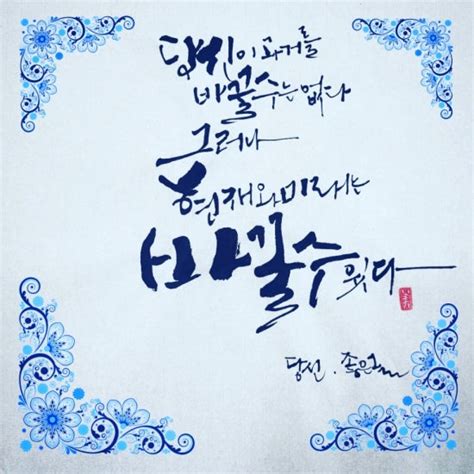 당신이 과거를
바꿀 수는 없다
그러나
현재와 미래는
바꿀 수 있다
당선. 좋은